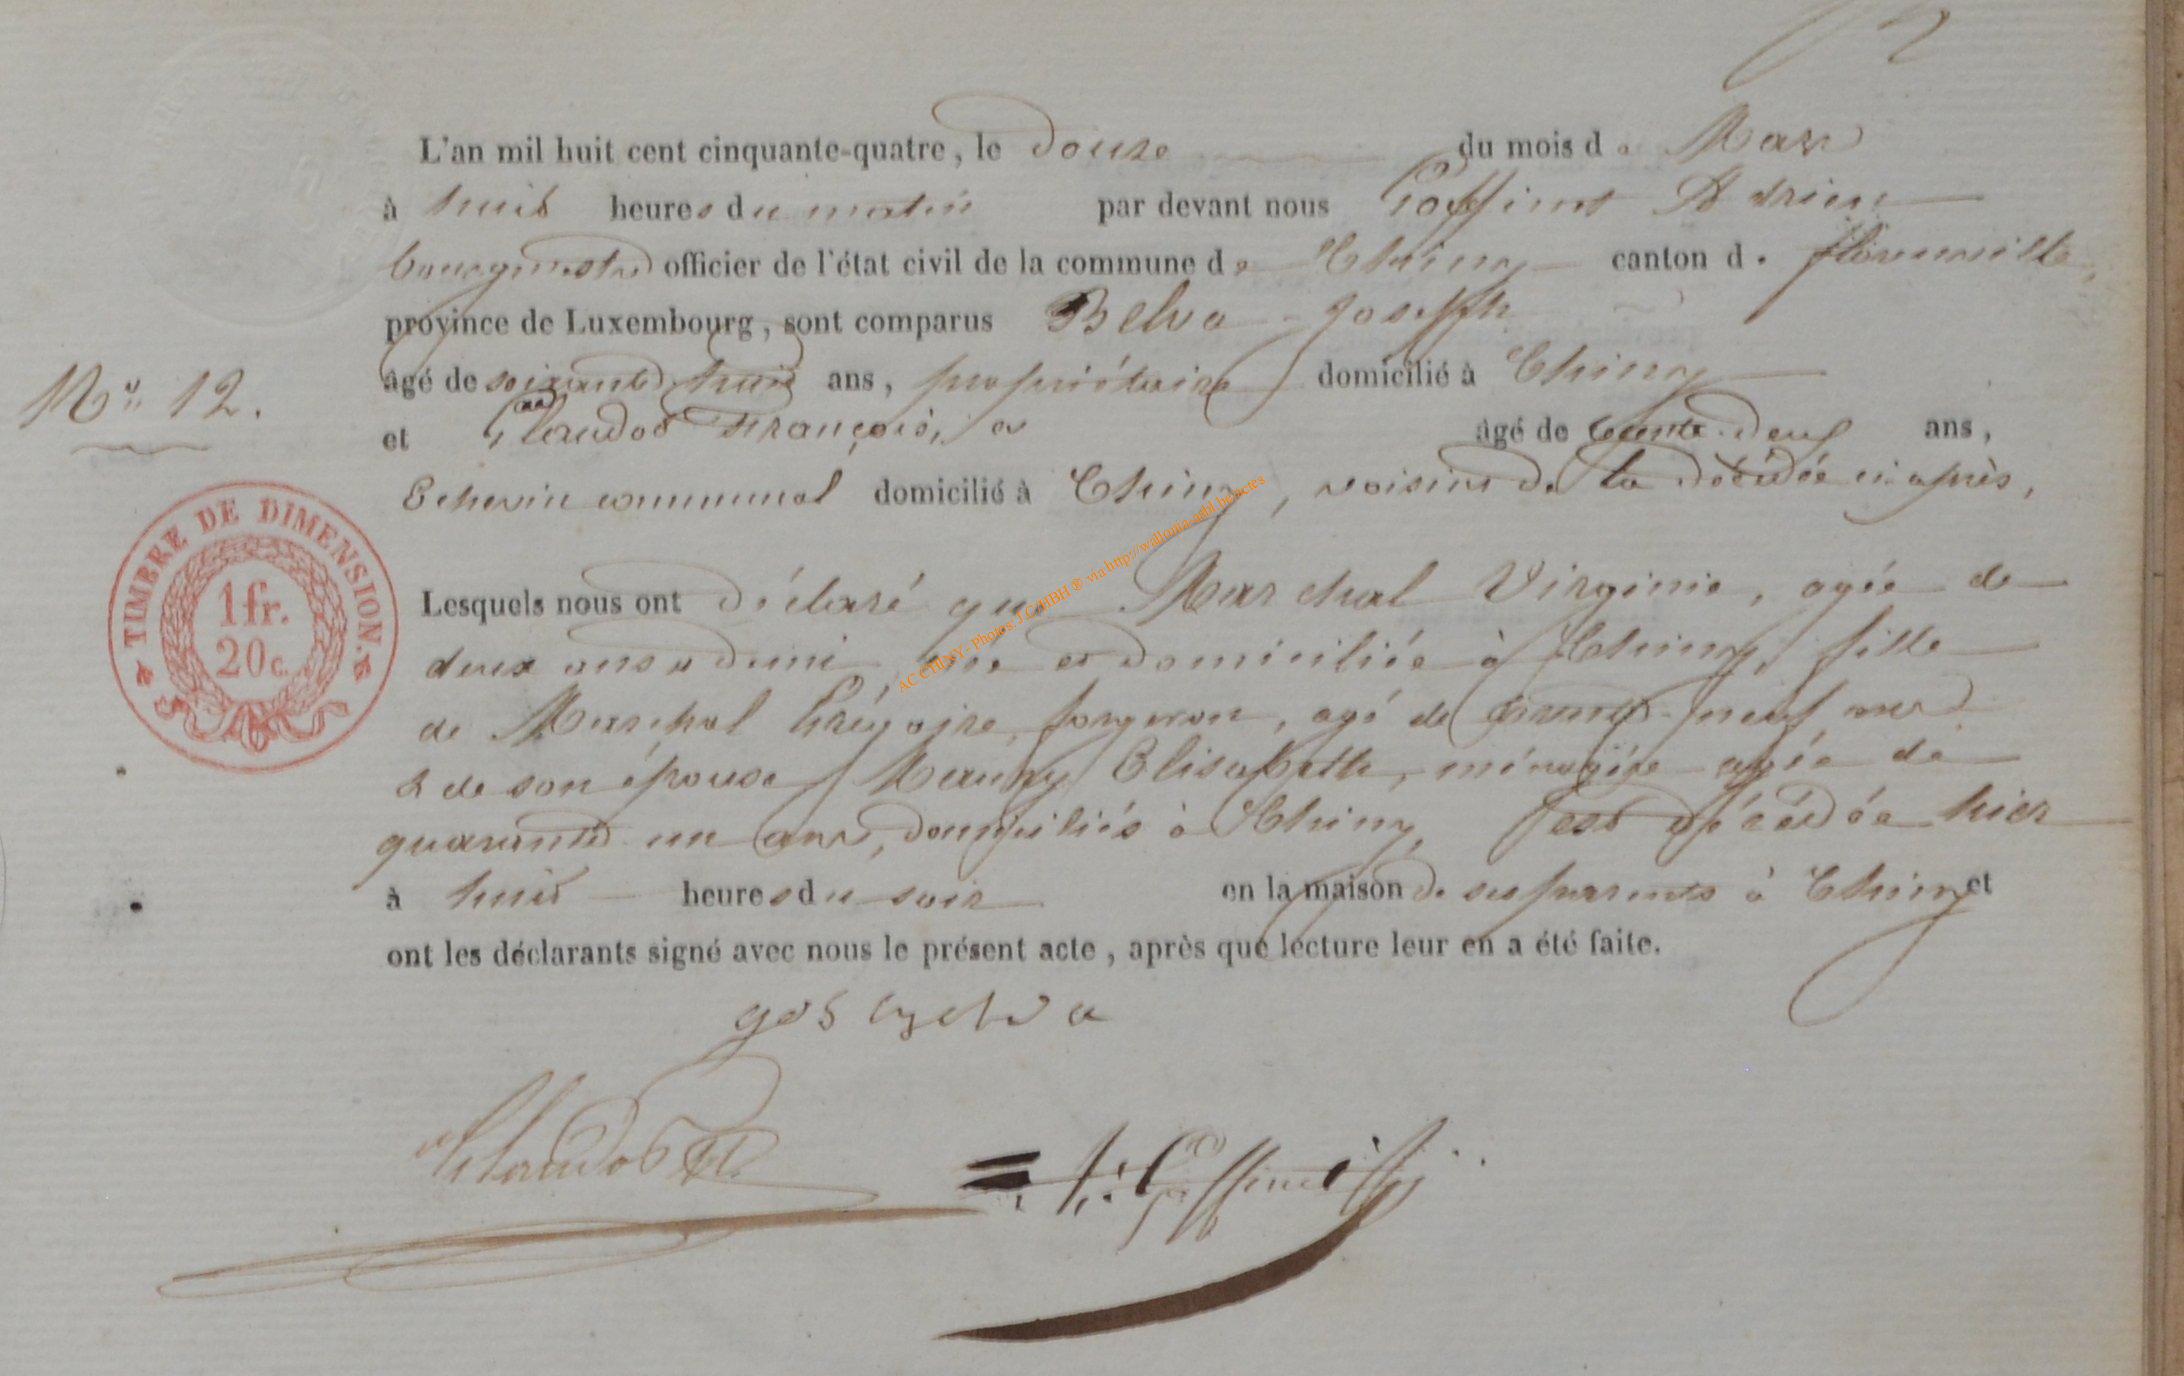 L'an mil huit cent cinquante-quatre, le douze du mois de Mars
à huit heures du matin par devant nous Goffinet Adrien
bourgmestre officier de l'état civil de la commune de Chiny canton de florenville,
province de Luxembourg, sont comparus Belva Joseph
âgé de soixante huit ans, propriétaire domicilié à Chiny
N° 12.
et Claudot François, âgé de trente-deux ans,
Echevin communal domicilié à Chiny, voisins de la décédée ci-après,
Lesquels nous ont déclaré que Marchal Virginie, agée de
deux ans & demi, née et domiciliée à Chiny, fille
de Marchal Grégoire, forgeron, agé de neuf ans
& de son épouse Mauny Elisabeth, ménagère agée de
quarante un ans, domiciliés à Chiny, est décédée hier
à huit heures du soir en la maison de ses parents à Chiny et
ont les déclarants signé avec nous le présent acte, après que lecture leur en a été faite.
Claudot
A. Goffinet
TIMBRE DE DIMENSION.
1fr.
20c.
AC CHINY- Photos: J.C. HBH ® via http://wallonia-asbl.be/actes